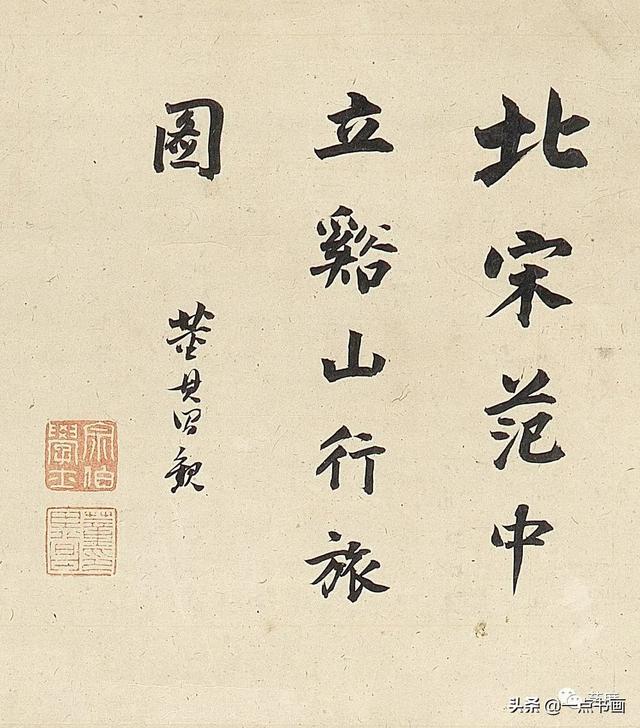 北宋范中
立谿山行旅
圖
董其昌觀
宗伯學士
董其昌印
头条 @一点书画